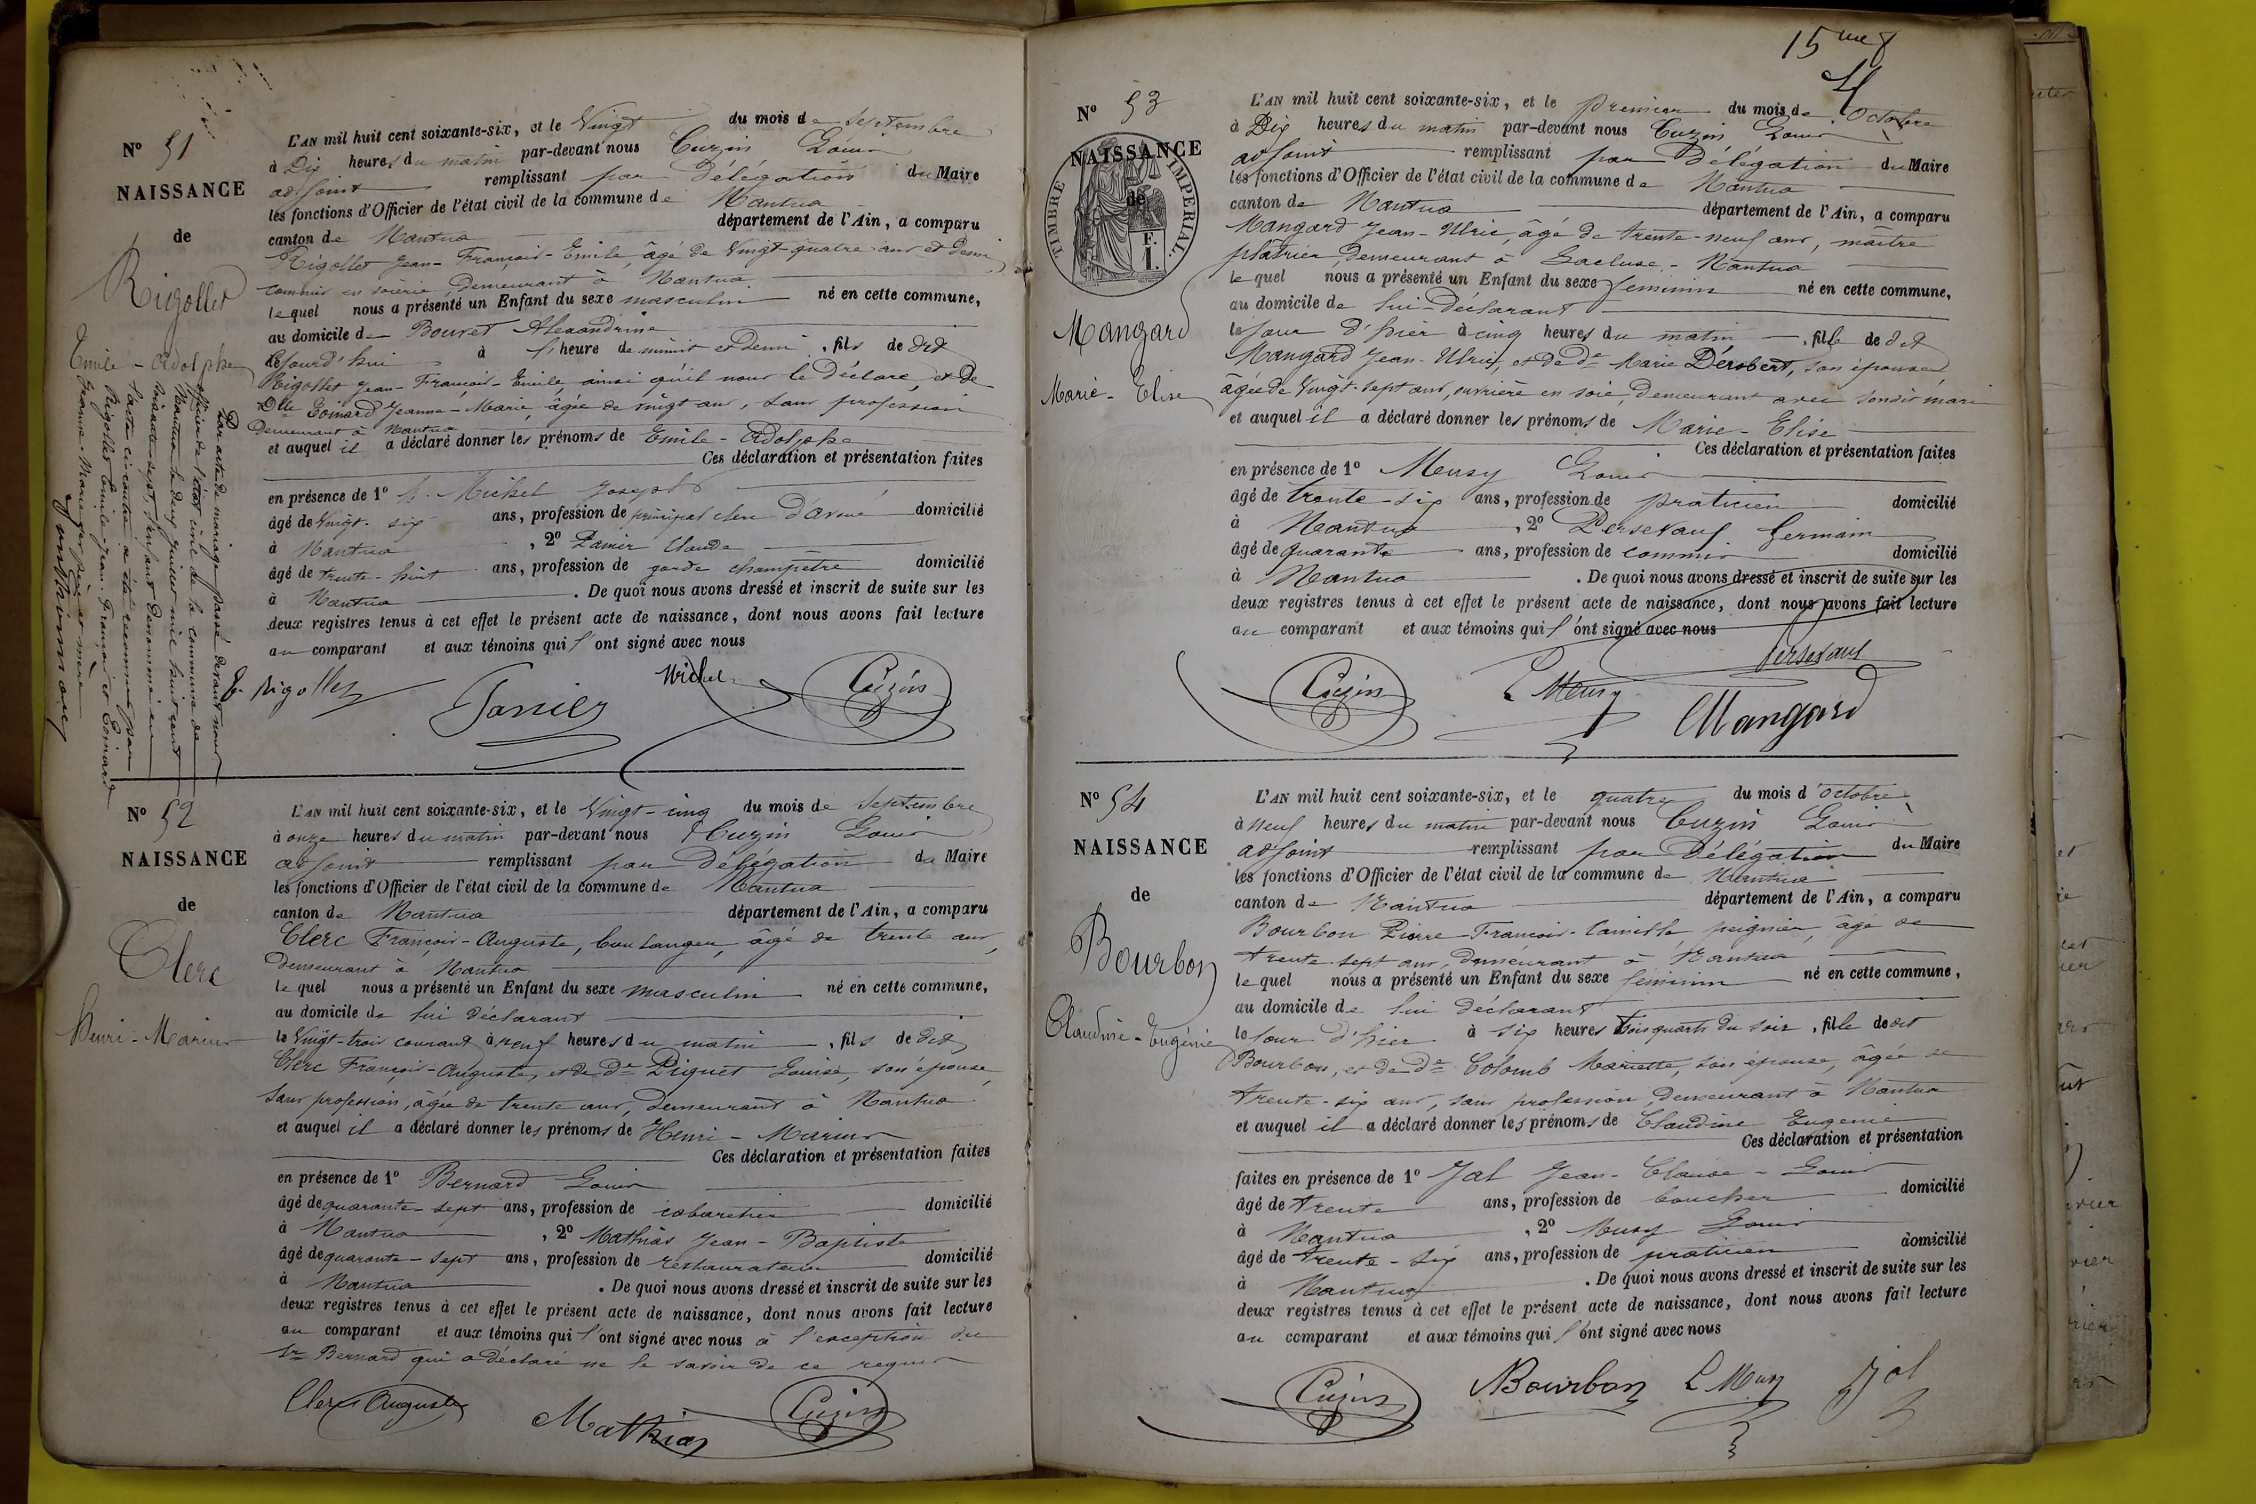 N° 51
NAISSANCE
de
Rigollet
Emile - Adolphe
Par acte de mariage passé devant nous
officier de l'état civil de la commune de
Nantua le deux juillet mil huit cent
soixante sept, l'enfant dénommé en
l'acte ci-contre a été reconnu par
Rigollet Emile-Jean-François et Goinard
Jeanne-Marie ses père et mère
L'AN mil huit cent soixante-six, et le Vingt du mois de Septembre
à Dix heures du matin par-devant nous Cuzin Louis
adjoint remplissant par Délégation du Maire
les fonctions d'Officier de l'état civil de la commune de Nantua
canton de Nantua département de l'Ain, a comparu
Rigollet Jean-François-Emile, âgé de Vingt-quatre ans et demi
commis en soierie, Demeurant à Nantua
lequel nous a présenté un Enfant du sexe masculin né en cette commune,
au domicile de Bouvet Alexandrine
le jourd'hui à l'heure de minuit et demi, fils de dit
Rigollet Jean-François-Emile ainsi qu'il nous le Déclare, et de
Dlle Goinard Jeanne-Marie, âgée de vingt ans, sans profession
Demeurant à Nantua
et auquel il a déclaré donner les prénoms de Emile-Adolphe
Ces déclaration et présentation faites
en présence de 1° Michel Joseph
âgé de Vingt-six ans, profession de principal clerc d'avoué domicilié
à Nantua, 2° Panier Claude
âgé de trente-huit ans, profession de garde champêtre domicilié
à Nantua. De quoi nous avons dressé et inscrit de suite sur les
deux registres tenus à cet effet le présent acte de naissance, dont nous avons fait lecture
au comparant et aux témoins qui l'ont signé avec nous
E. Rigollet Panier Michel Cuzin
N° 52
NAISSANCE
de
Clerc
Henri-Marius
L'AN mil huit cent soixante-six, et le Vingt-cinq du mois de Septembre
à onze heures du matin par-devant nous Cuzin Louis
adjoint remplissant par Délégation du Maire
les fonctions d'Officier de l'état civil de la commune de Nantua
canton de Nantua département de l'Ain, a comparu
Clerc François-Auguste, boulanger, âgé de trente ans,
demeurant à Nantua
lequel nous a présenté un Enfant du sexe masculin né en cette commune,
au domicile de lui déclarant
le Vingt-trois courant à neuf heures du matin, fils de dit
Clerc François-Auguste, et de De Piquet Louise, son épouse,
sans profession, âgée de trente ans, demeurant à Nantua
et auquel il a déclaré donner les prénoms de Henri-Marius
Ces déclaration et présentation faites
en présence de 1° Bernard Louis
âgé de quarante-sept ans, profession de cabaretier domicilié
à Nantua, 2° Mathias Jean-Baptiste
âgé de quarante-sept ans, profession de restaurateur domicilié
à Nantua. De quoi nous avons dressé et inscrit de suite sur les
deux registres tenus à cet effet le présent acte de naissance, dont nous avons fait lecture
au comparant et aux témoins qui l'ont signé avec nous à l'exception du
Sr Bernard qui a déclaré ne le savoir de ce requis
Clerc Auguste Mathias Cuzin
15me f
N° 53
NAISSANCE
de
TIMBRE IMPERIAL.
F.
1.
Mangard
Marie-Elise
L'AN mil huit cent soixante-six, et le premier du mois de Octobre
à Dix heures du matin par-devant nous Cuzin Louis
adjoint remplissant par Délégation du Maire
les fonctions d'Officier de l'état civil de la commune de Nantua
canton de Nantua département de l'Ain, a comparu
Mangard Jean-Ulric, âgé de trente-neuf ans, maître
plâtrier, demeurant à Lacluse-Nantua
lequel nous a présenté un Enfant du sexe féminin né en cette commune,
au domicile de lui-Déclarant
le jour d'hier à cinq heures du matin, fille de dit
Mangard Jean-Ulric, et de De Marie Dérobert, son épouse,
âgée de Vingt-sept ans, ouvrière en soie, Demeurant avec sondit mari
et auquel il a déclaré donner les prénoms de Marie-Elise
Ces déclaration et présentation faites
en présence de 1° Meusy Louis
âgé de trente-six ans, profession de praticien domicilié
à Nantua, 2° Persevaux Germain
âgé de quarante ans, profession de commis domicilié
à Nantua. De quoi nous avons dressé et inscrit de suite sur les
deux registres tenus à cet effet le présent acte de naissance, dont nous avons fait lecture
au comparant et aux témoins qui l'ont signé avec nous
Cuzin L Meusy Mangard
N° 54
NAISSANCE
de
Bourbon
Claudine-Eugénie
L'AN mil huit cent soixante-six, et le quatre du mois d'octobre
à neuf heures du matin par-devant nous Cuzin Louis
adjoint remplissant par Délégation du Maire
les fonctions d'Officier de l'état civil de la commune de Nantua
canton de Nantua département de l'Ain, a comparu
Bourbon Pierre-François-Camille peignier, âgé de
trente-sept ans, demeurant à Nantua
lequel nous a présenté un Enfant du sexe féminin né en cette commune,
au domicile de lui déclarant
le jour d'hier à six heures trois quarts du soir, fille de dit
Bourbon, et de De Colomb Mariette, son épouse, âgée de
trente-six ans, sans profession, demeurant à Nantua
et auquel il a déclaré donner les prénoms de Claudine Eugénie
Ces déclaration et présentation
faites en présence de 1° Jal Jean-Claude-Louis
âgé de trente ans, profession de boucher domicilié
à Nantua, 2° Meusy Louis
âgé de trente-six ans, profession de praticien domicilié
à Nantua. De quoi nous avons dressé et inscrit de suite sur les
deux registres tenus à cet effet le présent acte de naissance, dont nous avons fait lecture
au comparant et aux témoins qui l'ont signé avec nous
Cuzin Bourbon L Meusy Jal